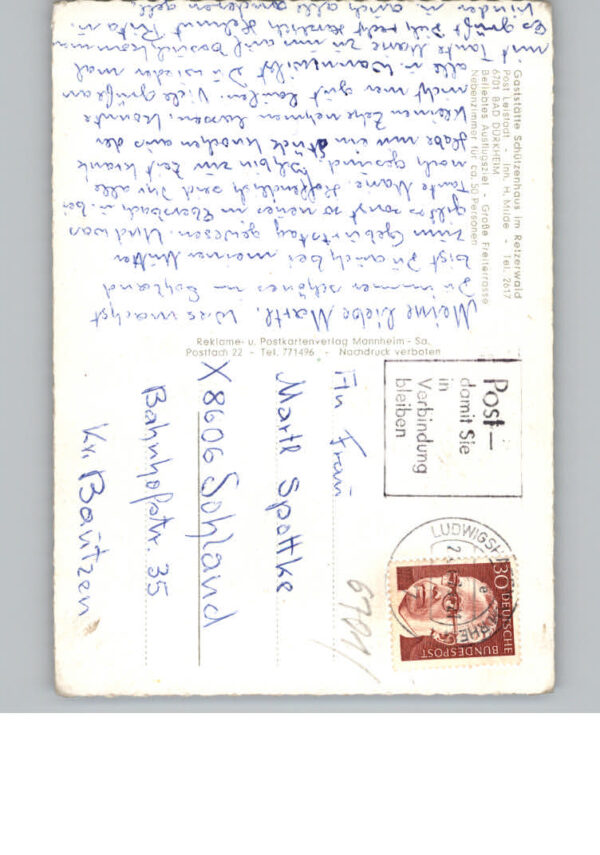 Gaststätte Schützenhaus im Retzerwald
Post Leistadt - Inh. H. Milde - Tel. 2617
6701 BAD DÜRKHEIM
Beliebtes Ausflugsziel - Große Freiterrasse
Nebenzimmer für ca. 50 Personen
Meine liebe Martl. Was machst
Du immer schönes in Sohland
bist Du auch bei meiner Mutter
zum Geburtstag gewesen. Und was
gibt es sonst so neues in Ebersbach u. bei
Tante Mame. Hoffendlich seid Ihr alle
noch gesund. Ich bin zur Zeit krank
Habe mir ein Stück Knochen aus der
kleinen Zehe nehmen lassen, konnte
nicht mer gut laufen. Viele grüße an
alle u. Wann willst Du wieder mal
mit Tante Mame zu mir auf Besuch kommen
Es grüßt Dich recht herzlich Helmut Rita u.
Kinder u. auch alle anderen
Reklame- u. Postkartenverlag Mannheim - Sa.
Postfach 22 - Tel. 771496 - Nachdruck verboten
Post-
damit Sie
in
Verbindung
bleiben
LUDWIGSH
30 DEUTSCHE
BUNDESPOST
An Frau
Martl Spottke
X 8606 Sohland
Bahnhofstr. 35
Kr. Bautzen